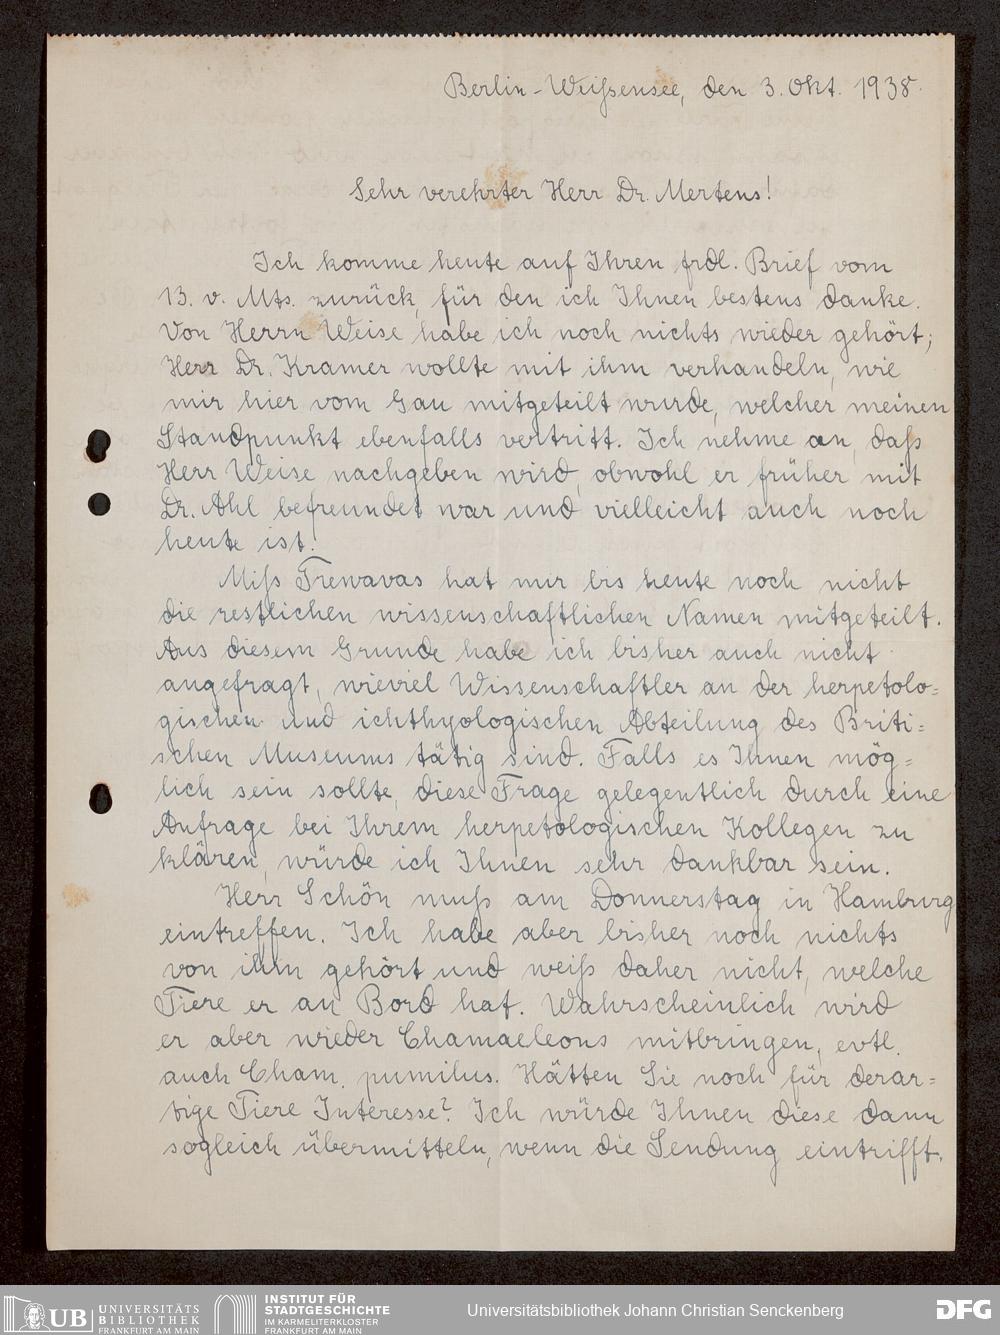 Berlin-Weißensee, den 3. Okt. 1938.
Sehr verehrter Herr Dr. Mertens!
Ich komme heute auf Ihren frdl. Brief vom
13. v. Mts. zurück, für den ich Ihnen bestens danke.
Von Herrn Weise habe ich noch nichts wieder gehört;
Herr Dr. Kramer wollte mit ihm verhandeln, wie
mir hier vom Gau mitgeteilt wurde, welcher meinen
Standpunkt ebenfalls vertritt. Ich nehme an, daß
Herr Weise nachgeben wird, obwohl er früher mit
Dr. Ahl befreundet war und vielleicht auch noch
heute ist.
Miß Trewavas hat mir bis heute noch nicht
die restlichen wissenschaftlichen Namen mitgeteilt.
Aus diesem Grunde habe ich bisher auch nicht
angefragt, wieviel Wissenschaftler an der herpetolo=
gischen und ichthyologischen Abteilung des Briti=
schen Museums tätig sind. Falls es Ihnen mög=
lich sein sollte, diese Frage gelegentlich durch eine
Anfrage bei Ihrem herpetologischen Kollegen zu
klären, würde ich Ihnen sehr dankbar sein.
Herr Schön muß am Donnerstag in Hamburg
eintreffen. Ich habe aber bisher noch nichts
von ihm gehört und weiß daher nicht, welche
Tiere er an Bord hat. Wahrscheinlich wird
er aber wieder Chamaeleons mitbringen, evtl.
auch Cham. pumilus. Hätten Sie noch für derar=
tige Tiere Interesse? Ich würde Ihnen diese dann
sogleich übermitteln, wenn die Sendung eintrifft.
UB UNIVERSITÄTS
BIBLIOTHEK
FRANKFURT AM MAIN
INSTITUT FÜR
STADTGESCHICHTE
IM KARMELITERKLOSTER
FRANKFURT AM MAIN
Universitätsbibliothek Johann Christian Senckenberg
DFG